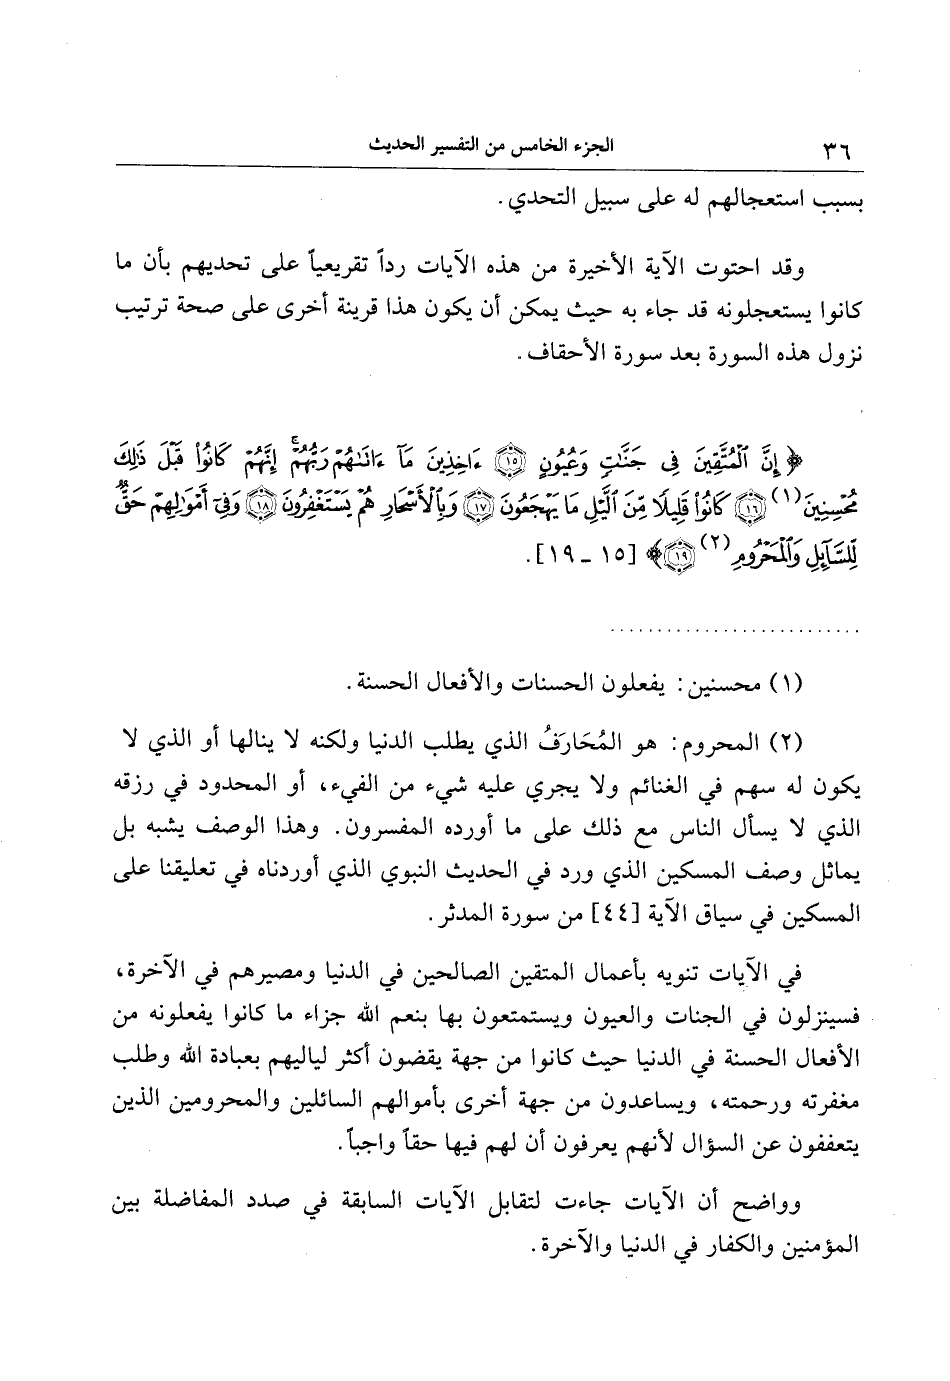 ٣٦ الجزء الخامس من التفسير الحديث
بسبب استعجالهم له على سبيل التحدي.
وقد احتوت الآية الأخيرة من هذه الآيات رداً تقريعياً على تحديهم بأن ما
كانوا يستعجلونه قد جاء به حيث يمكن أن يكون هذا قرينة أخرى على صحة ترتيب
نزول هذه السورة بعد سورة الأحقاف.
﴿ إِنَّ ٱلْمُتَّقِينَ فِى جَنَّٰتٍ وَعُيُونٍ ﴿١٥﴾ ءَاخِذِينَ مَآ ءَاتَىٰهُمْ رَبُّهُمْ ۚ إِنَّهُمْ كَانُوا۟ قَبْلَ ذَٰلِكَ
مُحْسِنِينَ (١) ﴿١٦﴾ كَانُوا۟ قَلِيلًا مِّنَ ٱلَّيْلِ مَا يَهْجَعُونَ ﴿١٧﴾ وَبِٱلْأَسْحَارِ هُمْ يَسْتَغْفِرُونَ ﴿١٨﴾ وَفِىٓ أَمْوَٰلِهِمْ حَقٌّ
لِّلسَّآئِلِ وَٱلْمَحْرُومِ (٢) ﴿١٩﴾ ﴾ [١٥ ـ ١٩].
..........................
(١) محسنين: يفعلون الحسنات والأفعال الحسنة.
(٢) المحروم: هو المُحَارَفُ الذي يطلب الدنيا ولكنه لا ينالها أو الذي لا
يكون له سهم في الغنائم ولا يجري عليه شيء من الفيء، أو المحدود في رزقه
الذي لا يسأل الناس مع ذلك على ما أورده المفسرون. وهذا الوصف يشبه بل
يماثل وصف المسكين الذي ورد في الحديث النبوي الذي أوردناه في تعليقنا على
المسكين في سياق الآية [٤٤] من سورة المدثر.
في الآيات تنويه بأعمال المتقين الصالحين في الدنيا ومصيرهم في الآخرة،
فسينزلون في الجنات والعيون ويستمتعون بها بنعم الله جزاء ما كانوا يفعلونه من
الأفعال الحسنة في الدنيا حيث كانوا من جهة يقضون أكثر لياليهم بعبادة الله وطلب
مغفرته ورحمته، ويساعدون من جهة أخرى بأموالهم السائلين والمحرومين الذين
يتعففون عن السؤال لأنهم يعرفون أن لهم فيها حقاً واجباً.
وواضح أن الآيات جاءت لتقابل الآيات السابقة في صدد المفاضلة بين
المؤمنين والكفار في الدنيا والآخرة.